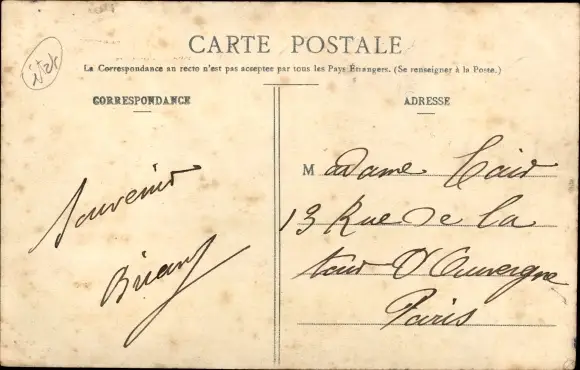 CARTE POSTALE
La Correspondance au recto n'est pas acceptée par tous les Pays Étrangers. (Se renseigner à la Poste.)
CORRESPONDANCE
ADRESSE
Souvenir
Madame
13 Rue De La
tour D'Auvergne
Paris